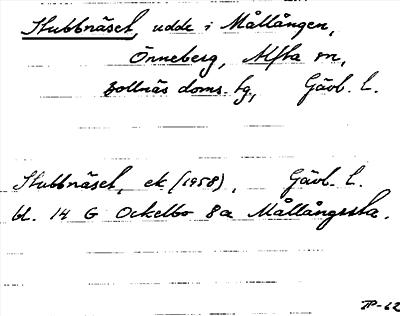 Stubbnäset, udde i Mållången,
Önneberg, Alfta sn,
Bollnäs doms. tg, Gävb. l.
Stubbnäset, ek (1958), Gävb. l.
bl. 14 G Ockelbo 8a Mållångssta.
-62